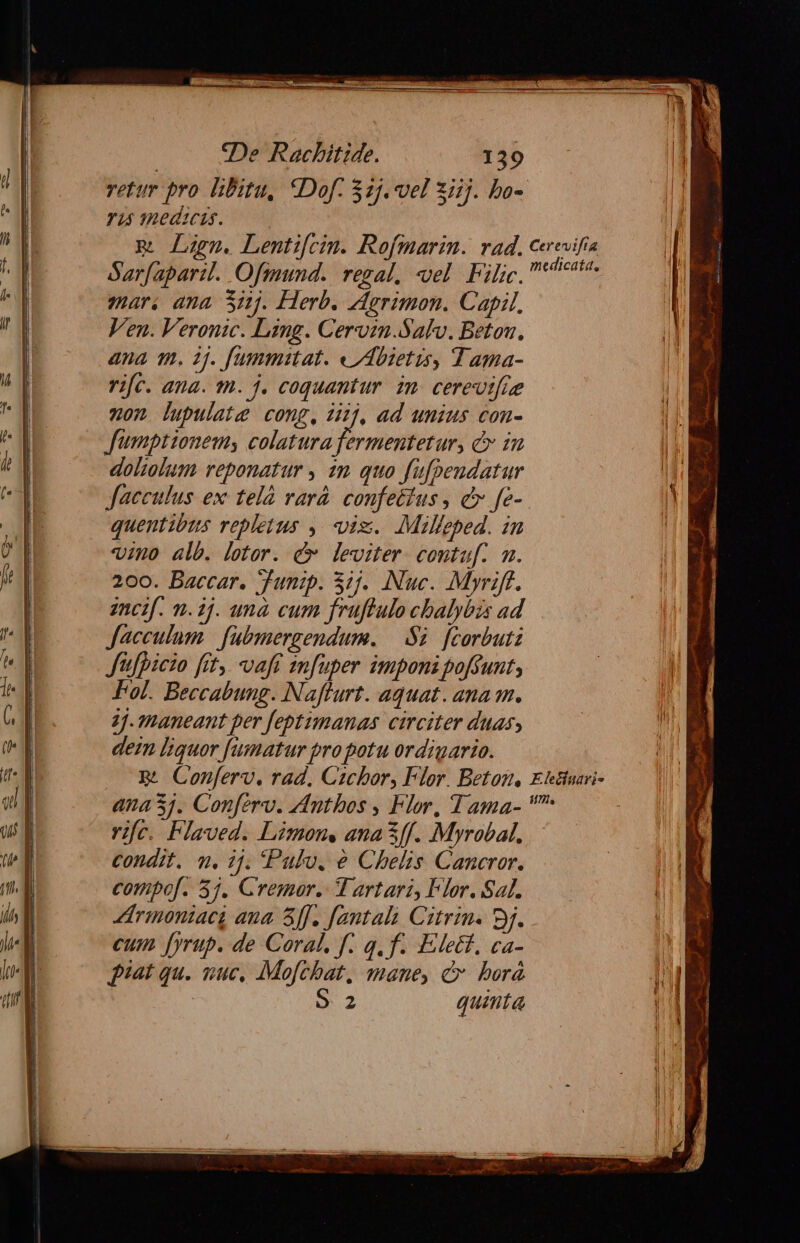 De Rachitide. 139
retur pro libitu, Dos. ʒij. vel ʒiij. ho-
ris medicis.
℞ Lign. Lentiſcin. Roſmarin. rad.
Cereviſia
Sarſaparil. Oſmund. regal, vel Filic.
medicata.
mar; ana ℥iij. Herb. Agrimon. Capil,
Ven. Veronic. Ling. Cervin. Salv. Beton,
ana m. ij. ſummitat. Abietis, Tama-
riſc. ana. m. j. coquantur in cereviſiæ
non lupulatæ cong, iiij, ad unius con-
ſumptionem, colatura fermentetur, & in
doliolum reponatur, in quo ſuſpendatur
ſacculus ex telâ rarâ confectus, & ſe-
quentibus repletus, viz. Milleped. in
vino alb. lotor. & leviter contuſ. n.
200. Baccar. Junip. ℥ij. Nuc. Myriſt.
inciſ. n. ij. unà cum fruſtulo chalybis ad
ſacculum ſubmergendum. Si ſcorbuti
ſuſpicio ſit, vaſi inſuper imponi poſſunt,
Fol. Beccabung. Naſturt. aquat. ana m.
ij. maneant per ſeptimanas circiter duas,
dein liquor ſumatur pro potu ordinario.
℞ Conſerv. rad. Cichor, Flor. Beton,
Electuari-
ana ℥j. Conſerv. Anthos, Flor, Tama-
um.
riſc. Flaved. Limon, ana ℥ſſ. Myrobal,
condit. n. ij. Pulv. è Chelis Cancror.
compoſ. ʒj. Cremor. Tartari, Flor. Sal.
Armoniaci ana ʒſſ. ſantali Citrin. ℈j.
cum ſyrup. de Coral. ſ. q. f. Elect. ca-
piat qu. nuc, Moſchat, mane, & horâ
S 2 quinta